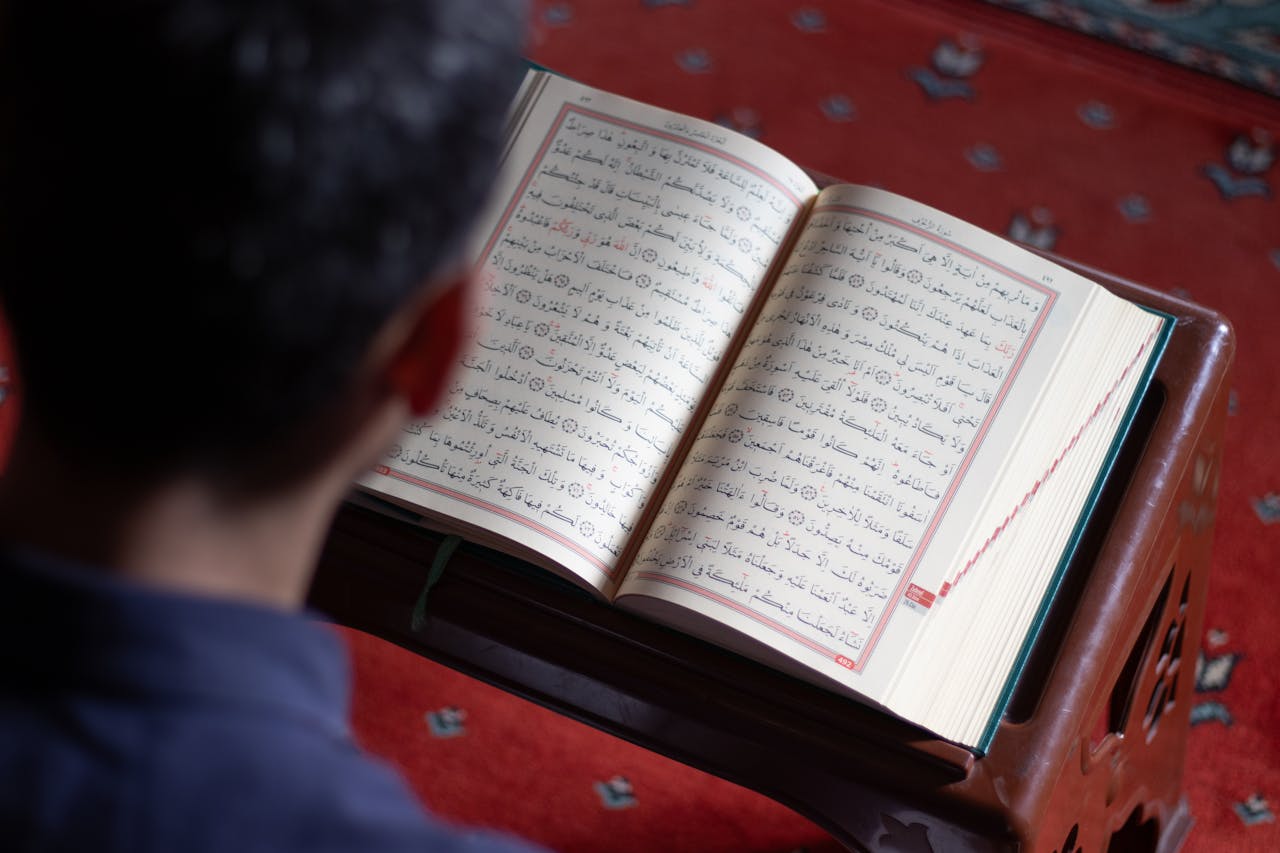 سُورَةُ الزُّخْرُفِ
٤٩٢
وَمَا نُرِيهِمْ مِنْ اٰيَةٍ اِلَّا هِيَ اَكْبَرُ مِنْ اُخْتِهَا
بِالْعَذَابِ لَعَلَّهُمْ يَرْجِعُونَ وَقَالُوا يَٓا اَيُّهَ السَّاحِرُ ادْعُ
رَبَّكَ بِمَا عَهِدَ عِنْدَكَ اِنَّنَا لَمُهْتَدُونَ فَلَمَّا كَشَفْنَا
الْعَذَابَ اِذَا هُمْ يَنْكُثُونَ وَنَادٰى فِرْعَوْنُ فِي
قَالَ يَا قَوْمِ اَلَيْسَ لِي مُلْكُ مِصْرَ وَهٰذِهِ الْاَنْهَارُ تَجْرِي
تَحْتِي اَفَلَا تُبْصِرُونَ اَمْ اَنَا خَيْرٌ مِنْ هٰذَا الَّذِي هُوَ
وَلَا يَكَادُ يُبِينُ فَلَوْلَٓا اُلْقِيَ عَلَيْهِ اَسْوِرَةٌ مِنْ
اَوْ جَٓاءَ مَعَهُ الْمَلٰٓئِكَةُ مُقْتَرِنِينَ فَاسْتَخَفَّ
فَاَطَاعُوهُ اِنَّهُمْ كَانُوا قَوْمًا فَاسِقِينَ
اٰسَفُونَا انْتَقَمْنَا مِنْهُمْ فَاَغْرَقْنَاهُمْ اَجْمَعِينَ فَجَعَلْنَاهُمْ
سَلَفًا وَمَثَلًا لِلْاٰخِرِينَ وَلَمَّا ضُرِبَ ابْنُ مَرْيَمَ مَثَلًا
قَوْمُكَ مِنْهُ يَصِدُّونَ وَقَالُٓوا ءَاٰلِهَتُنَا خَيْرٌ اَمْ
ضَرَبُوهُ لَكَ اِلَّا جَدَلًا بَلْ هُمْ قَوْمٌ خَصِمُونَ
اِلَّا عَبْدٌ اَنْعَمْنَا عَلَيْهِ وَجَعَلْنَاهُ مَثَلًا لِبَنِٓي اِسْرَٓائِيلَ
نَشَٓاءُ لَجَعَلْنَا مِنْكُمْ مَلٰٓئِكَةً فِي الْاَرْضِ
492
لَعِلْمٌ لِلسَّاعَةِ فَلَا تَمْتَرُنَّ بِهَا وَاتَّبِعُونِ هٰذَا صِرَاطٌ
وَلَا يَصُدَّنَّكُمُ الشَّيْطَانُ اِنَّهُ لَكُمْ عَدُوٌّ
وَلَمَّا جَٓاءَ عِيسٰى بِالْبَيِّنَاتِ قَالَ قَدْ جِئْتُكُمْ
وَلِاُبَيِّنَ لَكُمْ بَعْضَ الَّذِي تَخْتَلِفُونَ فِيهِ
فَاتَّقُوا اللّٰهَ وَاَطِيعُونِ اِنَّ اللّٰهَ هُوَ رَبِّي وَرَبُّكُمْ فَاعْبُدُوهُ
هٰذَا صِرَاطٌ مُسْتَقِيمٌ فَاخْتَلَفَ الْاَحْزَابُ مِنْ بَيْنِهِمْ
لِلَّذِينَ ظَلَمُوا مِنْ عَذَابِ يَوْمٍ اَلِيمٍ هَلْ يَنْظُرُونَ اِلَّا
السَّاعَةَ اَنْ تَأْتِيَهُمْ بَغْتَةً وَهُمْ لَا يَشْعُرُونَ
بَعْضُهُمْ لِبَعْضٍ عَدُوٌّ اِلَّا الْمُتَّقِينَ يَا عِبَادِ لَا خَوْفٌ
عَلَيْكُمُ الْيَوْمَ وَلَٓا اَنْتُمْ تَحْزَنُونَ اَلَّذِينَ
وَكَانُوا مُسْلِمِينَ اُدْخُلُوا الْجَنَّةَ
وَاَزْوَاجُكُمْ تُحْبَرُونَ يُطَافُ عَلَيْهِمْ بِصِحَافٍ
وَاَكْوَابٍ وَفِيهَا مَا تَشْتَهِيهِ الْاَنْفُسُ وَتَلَذُّ الْاَعْيُنُ
فِيهَا خَالِدُونَ وَتِلْكَ الْجَنَّةُ الَّتِٓي اُورِثْتُمُوهَا بِمَا كُنْتُمْ
تَعْمَلُونَ لَكُمْ فِيهَا فَاكِهَةٌ كَثِيرَةٌ مِنْهَا تَأْكُلُونَ